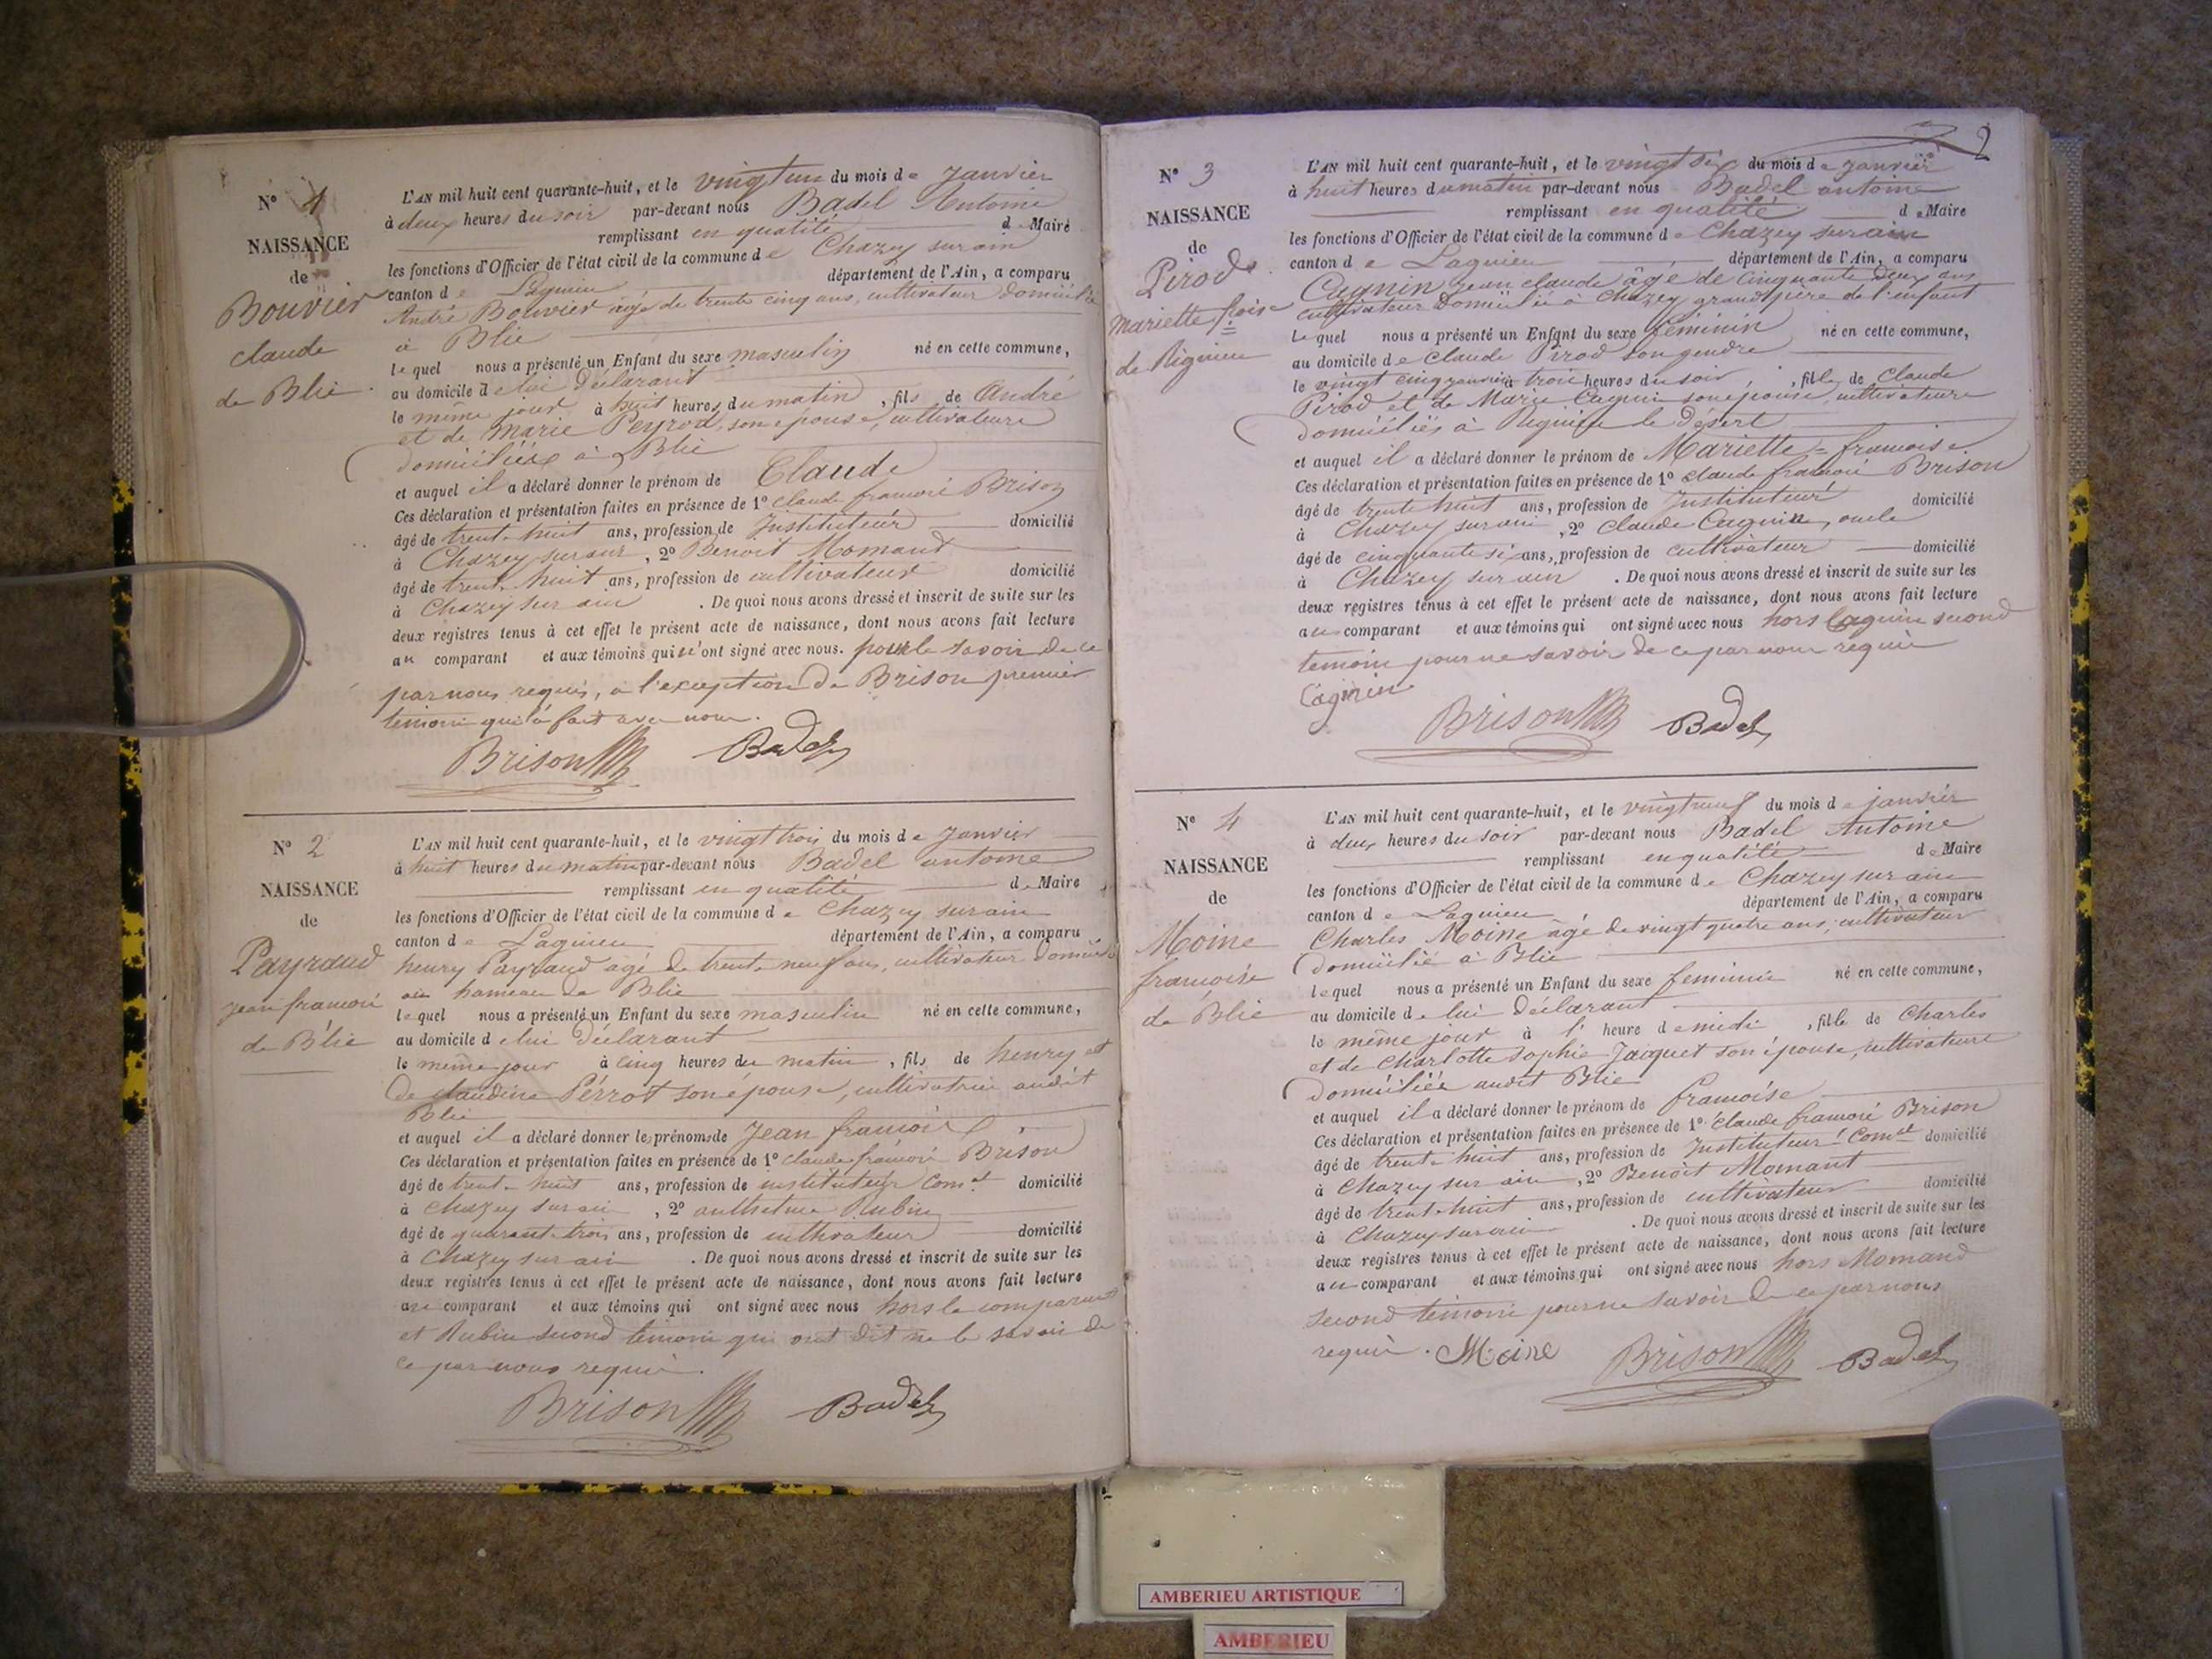 Nº 1
NAISSANCE
de
Bouvier
claude
de Blie
L'AN mil huit cent quarante-huit, et le vingt un du mois de janvier
à deux heures du soir par-devant nous Badel Antoine
remplissant en qualité de Maire
les fonctions d'Officier de l'état civil de la commune de Chazey sur ain
canton de Lagnieu département de l'Ain, a comparu
André Bouvier agé de trente cinq ans, cultivateur domicilié
à Blie
lequel nous a présenté un Enfant du sexe masculin né en cette commune,
au domicile de lui déclarant
le même jour à huit heures du matin, fils de André
et de marie Peyrod, son épouse, cultivateurs
domiciliés à Blie
et auquel il a déclaré donner le prénom de Claude
Ces déclaration et présentation faites en présence de 1º claude françois Brison
âgé de trente huit ans, profession de Instituteur domicilié
à Chazey sur ain, 2º Benoit Momant
âgé de trente huit ans, profession de cultivateur domicilié
à Chazey sur ain. De quoi nous avons dressé et inscrit de suite sur les
deux registres tenus à cet effet le présent acte de naissance, dont nous avons fait lecture
au comparant et aux témoins qui n'ont signé avec nous. pour le savoir de ce
par nous requis, à l'exception de Brison premier
temoin qui à fait avec nous.
Brison Badel
Nº 2
NAISSANCE
de
Payraud
jean françois
de Blie
L'AN mil huit cent quarante-huit, et le vingt trois du mois de janvier
à huit heures du matin par-devant nous Badel antoine
remplissant en qualité de Maire
les fonctions d'Officier de l'état civil de la commune de Chazey sur ain
canton de Lagnieu département de l'Ain, a comparu
henry Payraud agé de trente neuf ans, cultivateur domicilié
au hameau de Blie
lequel nous a présenté un Enfant du sexe masculin né en cette commune,
au domicile de lui déclarant
le même jour à cinq heures du matin, fils de henry et
de claudine Pérrot son épouse, cultivatrice audit
Blie
et auquel il a déclaré donner les prénoms de Jean françois
Ces déclaration et présentation faites en présence de 1º claude françois Brison
âgé de trente huit ans, profession de instituteur Comal domicilié
à Chazey sur ain, 2º anthelme Rubin
âgé de quarante trois ans, profession de cultivateur domicilié
à Chazey sur ain. De quoi nous avons dressé et inscrit de suite sur les
deux registres tenus à cet effet le présent acte de naissance, dont nous avons fait lecture
au comparant et aux témoins qui ont signé avec nous hors le comparant
et Rubin second témoin qui ont dit ne le savoir de
ce par nous requis.
Brison Badel
2
Nº 3
NAISSANCE
de
Pirod
mariette foise
de Rignieu
L'AN mil huit cent quarante-huit, et le vingt six du mois de janvier
à huit heures du matin par-devant nous Badel antoine
remplissant en qualité de Maire
les fonctions d'Officier de l'état civil de la commune de Chazey sur ain
canton de Lagnieu département de l'Ain, a comparu
Cagnin jean claude âgé de cinquante deux ans
cultivateur domicilié à Chazey grand père de l'enfant
Lequel nous a présenté un Enfant du sexe féminin né en cette commune,
au domicile de claude Pirod son gendre
le vingt cinq janvier à trois heures du soir, fille de Claude
Pirod et de Marie Cagnin son épouse, cultivateurs
domiciliés à Rignieu le désert
et auquel il a déclaré donner le prénom de Mariette = françoise
Ces déclaration et présentation faites en présence de 1º claude françois Brison
âgé de trente huit ans, profession de Instituteur domicilié
à Chazey sur ain, 2º Claude Cagnin, oncle
âgé de cinquante six ans, profession de cultivateur domicilié
à Chazey sur ain. De quoi nous avons dressé et inscrit de suite sur les
deux registres tenus à cet effet le présent acte de naissance, dont nous avons fait lecture
au comparant et aux témoins qui ont signé avec nous hors Cagnin second
temoin pour ne savoir de ce par nous requis
Cagnin
Brison Badel
Nº 4
NAISSANCE
de
Moine
françoise
de Blie
L'AN mil huit cent quarante-huit, et le vingt neuf du mois de janvier
à deux heures du soir par-devant nous Badel Antoine
remplissant en qualité de Maire
les fonctions d'Officier de l'état civil de la commune de Chazey sur ain
canton de Lagnieu département de l'Ain, a comparu
Charles Moine âgé de vingt quatre ans, cultivateur
domicilié à Blie
lequel nous a présenté un Enfant du sexe feminin né en cette commune,
au domicile de lui déclarant
le même jour à l' heure de midi, fille de Charles
et de Charlotte Sophie Jacquet son épouse, cultivateurs
domiciliés audit Blie
et auquel il a déclaré donner le prénom de françoise
Ces déclaration et présentation faites en présence de 1º Claude françois Brison
âgé de trente huit ans, profession de Instituteur Comal domicilié
à Chazey sur ain, 2º Benoit Momant
âgé de trente huit ans, profession de cultivateur domicilié
à Chazey sur ain. De quoi nous avons dressé et inscrit de suite sur les
deux registres tenus à cet effet le présent acte de naissance, dont nous avons fait lecture
au comparant et aux témoins qui ont signé avec nous hors Momand
second témoin pour ne savoir de ce par nous
requis. Moine Brison Badel
AMBERIEU ARTISTIQUE
AMBERIEU